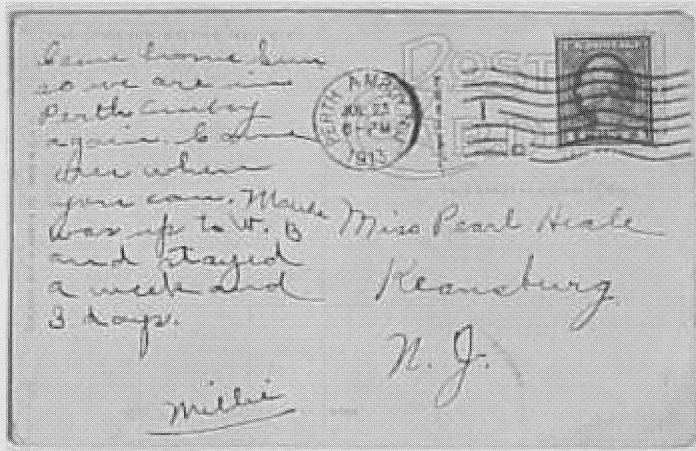 Came home Sun
so we are in
Perth Amboy
again. Come
over when
you can. Maude
was up to W. B
and stayed
a week and
3 days.
Millie
PERTH AMBOY, N.J.
JUL 23
1913
POST
Miss Pearl Heale
Keansburg
N. J.